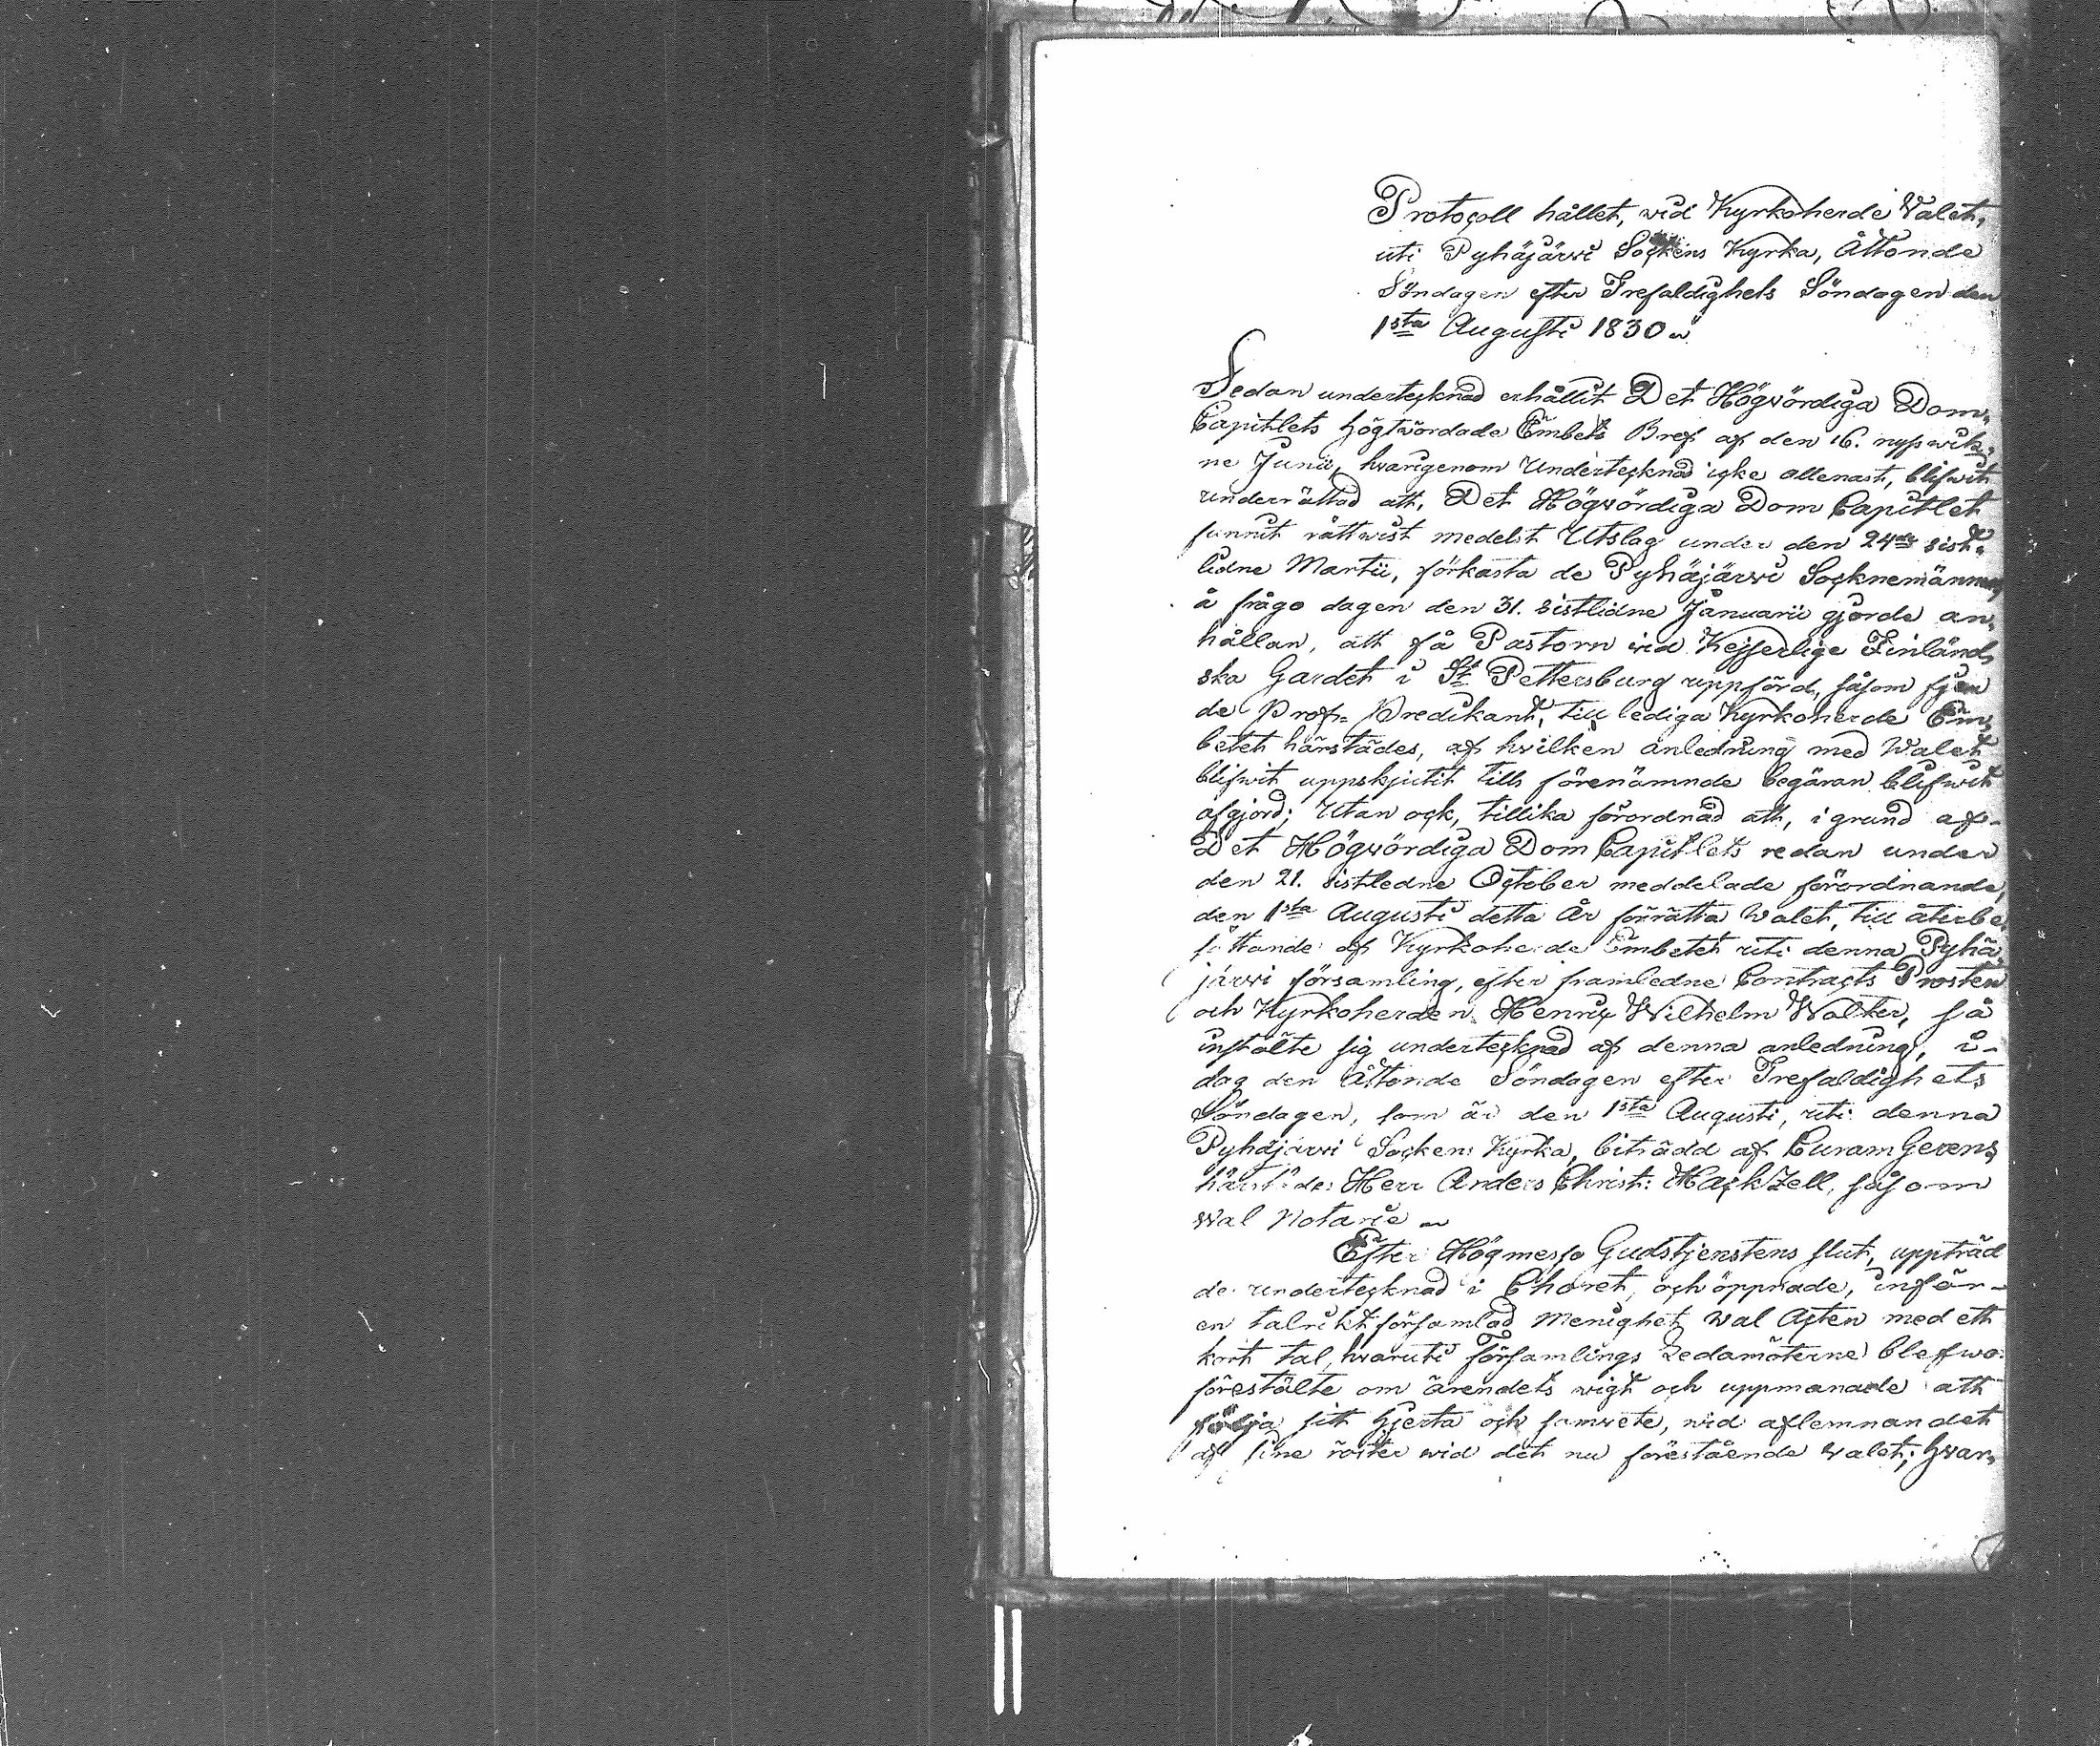 Protocoll hållet, wid Kyrkoherde Valet,
uti Pyhäjärwi Sockens Kyrka, Åttonde
Söndagen efter Trefaldighets Söndagen den
1sta Augusti 1830
Sedan undertecknad erhållit Det Högvördiga Dom-
Capitlets högtvördade Embets Bref af den 16. nysswik-
ne Junii, hvarigenom Undertecknad icke allenast, blifwit
underrättad att, Det Högvördiga Dom Capitlet
funnit rättwist medelst Utslag under den 24de sist-
lidne Martii, förkasta de Pyhäjärwi Socknemänner
å frågo dagen den 31. sistlidne Januarii gjorde an-
hållan, att få Pastorn vid Kejserlige Finländ-
ska Gardet i St Pettersburg uppförd, såsom fjer
de Prof-Predikant, till lediga Kyrkoherde Em-
betet härstädes, af hvilken anledning med Walet
blifwit uppskjutit tills förenämnde begäran blifwit
afgjord; Utan ock, tillika förordnad att, i grund af
Det Högvördiga Dom Capitlets redan under
den 21. sistledne October meddelade förordnande,
den 1sta Augusti detta År förrätta Walet, till återbe-
sättande af Kyrkoherde Embetet uti denna Pyhä-
järwi församling, efter framledne Contracts Prosten
och Kyrkoherden Henric Wilhelm Walter, så
instälte sig undertecknad af denna anledning, i-
dag den Åttonde Söndagen efter Trefaldighets
Söndagen, som är den 1sta Augusti, uti denna
Pyhäjärwi Sockens Kyrka, biträdd af CuramGerens
härstädes Herr Anders Christ: HackZell, såsom
Wal Notarie
Efter Högmesso Gudstjenstens slut, uppträd
de undertecknad i Choret, och öppnade, inför-
en talrikt församlad Menighet Wal Acten med ett
kort tal, hvaruti Församlings Ledamöterne blefwo
förestälte om ärendets wigt och uppmanade att
följa sitt hjerta och samvete, wid aflemnandet
af sine röster wid det nu förestående walet; hvar-